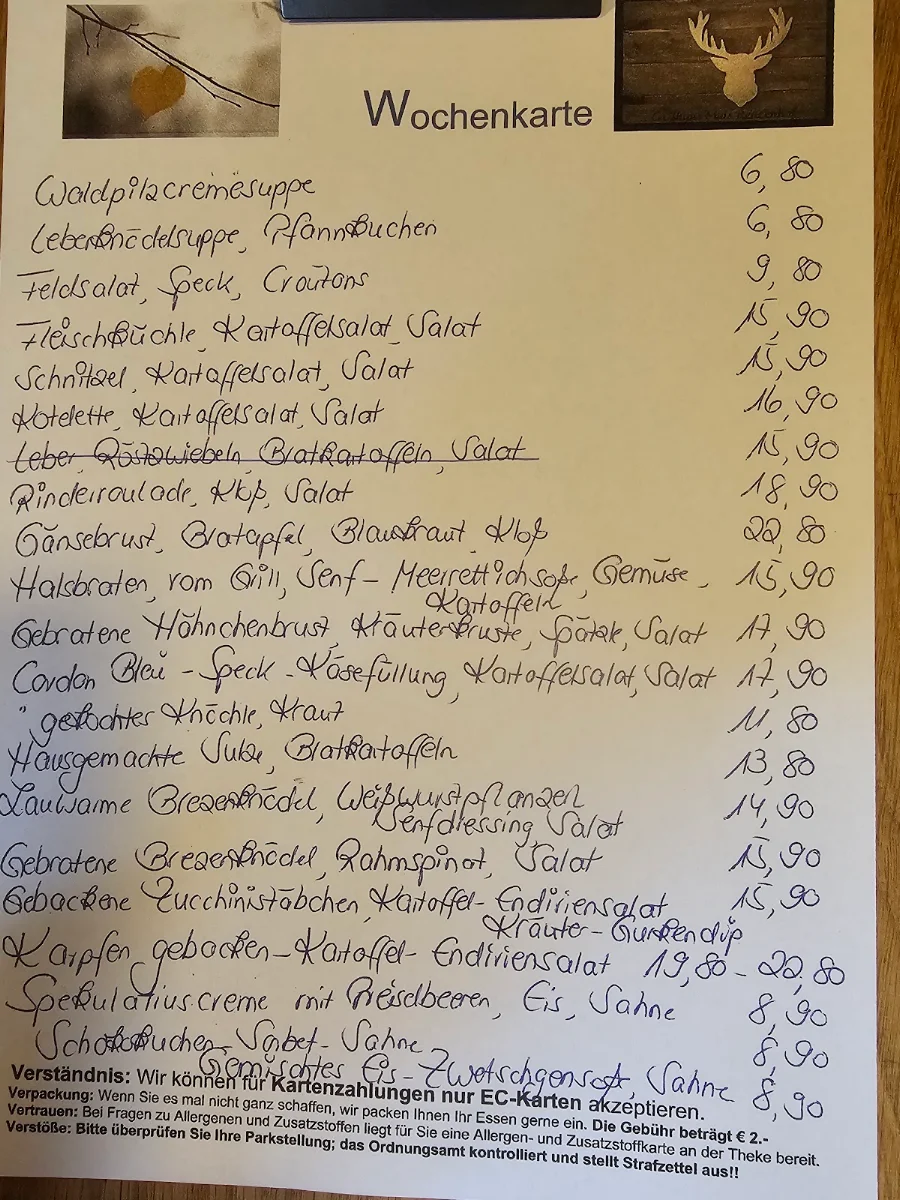 Wochenkarte
Waldpilzcremesuppe 6,80
Leberknödelsuppe, Pfannkuchen 6,80
Feldsalat, Speck, Croutons 9,80
Fleischküchle, Kartoffelsalat, Salat 15,90
Schnitzel, Kartoffelsalat, Salat 15,90
Kotelette, Kartoffelsalat, Salat 16,90
Leber, Röstzwiebeln, Bratkartoffeln, Salat 15,90
Rinderroulade, Kloß, Salat 18,90
Gänsebrust, Bratapfel, Blaukraut, Kloß 22,80
Halsbraten, vom Grill, Senf- Meerrettichsoße, Gemüse, 15,90
Kartoffeln
Gebratene Hähnchenbrust, Kräuterkruste, Spätzle, Salat 17,90
Cordon Bleu - Speck - Käsefüllung, Kartoffelsalat, Salat 17,90
" gekochtes Knöchle, Kraut 11,80
Hausgemachte Sulze, Bratkartoffeln 13,80
Lauwarme Brezenknödel, Weißwurstpflanzen 14,90
Senfdressing Salat
Gebratene Brezenknödel, Rahmspinat, Salat 15,90
Gebackene Zucchinistäbchen, Kartoffel- Endiviensalat 15,90
Kräuter-Gurkendip
Karpfen gebacken - Kartoffel- Endiviensalat 19,80 - 22,80
Spekulatiuscreme mit Preiselbeeren, Eis, Sahne 8,90
Schokokuchen - Sorbet - Sahne 8,90
Gemischtes Eis - Zwetschgensoße, Sahne 8,90
Verständnis: Wir können für Kartenzahlungen nur EC-Karten akzeptieren.
Verpackung: Wenn Sie es mal nicht ganz schaffen, wir packen Ihnen Ihr Essen gerne ein. Die Gebühr beträgt € 2.-
Vertrauen: Bei Fragen zu Allergenen und Zusatzstoffen liegt für Sie eine Allergen- und Zusatzstoffkarte an der Theke bereit.
Verstöße: Bitte überprüfen Sie Ihre Parkstellung; das Ordnungsamt kontrolliert und stellt Strafzettel aus!!